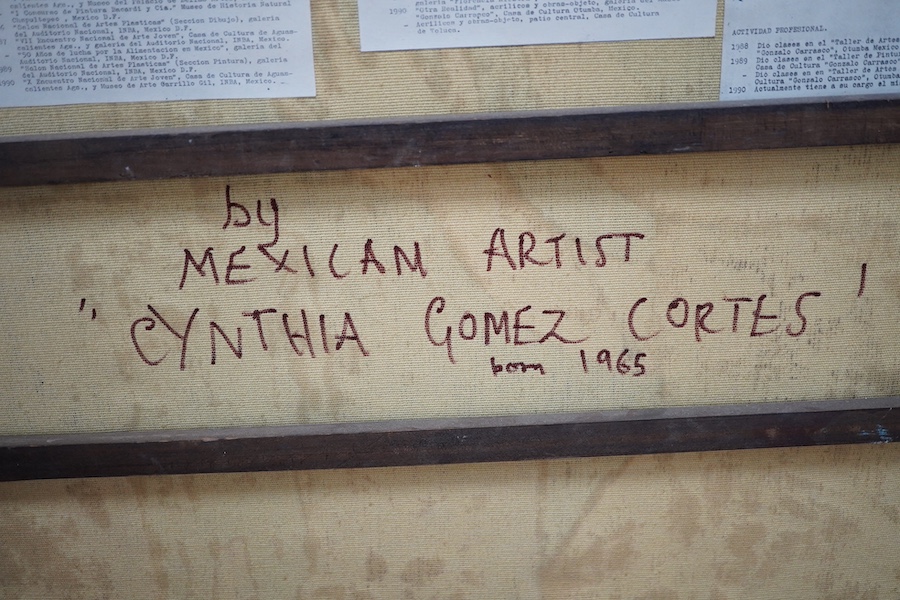 calientes Ags., y Museo del Palacio de Bellas
"I Concurso de Pintura Dacardi y Cía." Museo de Historia Natural
Chapultepec, Mexico D.F.
"Salon Nacional de Artes Plasticas" (Seccion Dibujo), galeria
del Auditorio Nacional, INBA, Mexico D.F.
"VII Encuentro Nacional de Arte Joven", Casa de Cultura de Aguas-
calientes Ags., y galeria del Auditorio Nacional, INBA, Mexico.
"50 Años de lucha por la Alimentacion en Mexico", galeria del
Auditorio Nacional, INBA, Mexico D.F
1989 "Salon Nacional de Artes Plasticas" (Seccion Pintura), galeria
del Auditorio Nacional, INBA, Mexico D.F
1990 "X Encuentro Nacional de Arte Joven", Casa de Cultura de Aguas-
calientes Ags., y Museo de Arte Carrillo Gil, INBA, Mexico.
1990
"Otra Realidad", acrilicos y obras-objeto, galeria del
"Gonzalo Carrasco", Casa de Cultura Otumba, Mexico.
- Acrilicos y obras-objeto, patio central, Casa de Cultura
de Toluca.
ACTIVIDAD PROFESIONAL.
1988 Dio clases en el "Taller de Artes
"Gonzalo Carrasco", Otumba Mexico
1989 Dio clases en el "Taller de Pintu
Casa de Cultura "Gonzalo Carrasco"
- Dio clases en en "Taller de Artes
Cultura "Gonzalo Carrasco", Otumba
1990 Actualmente tiene a su cargo el
by
MEXICAN ARTIST
"CYNTHIA GOMEZ CORTES'
born 1965